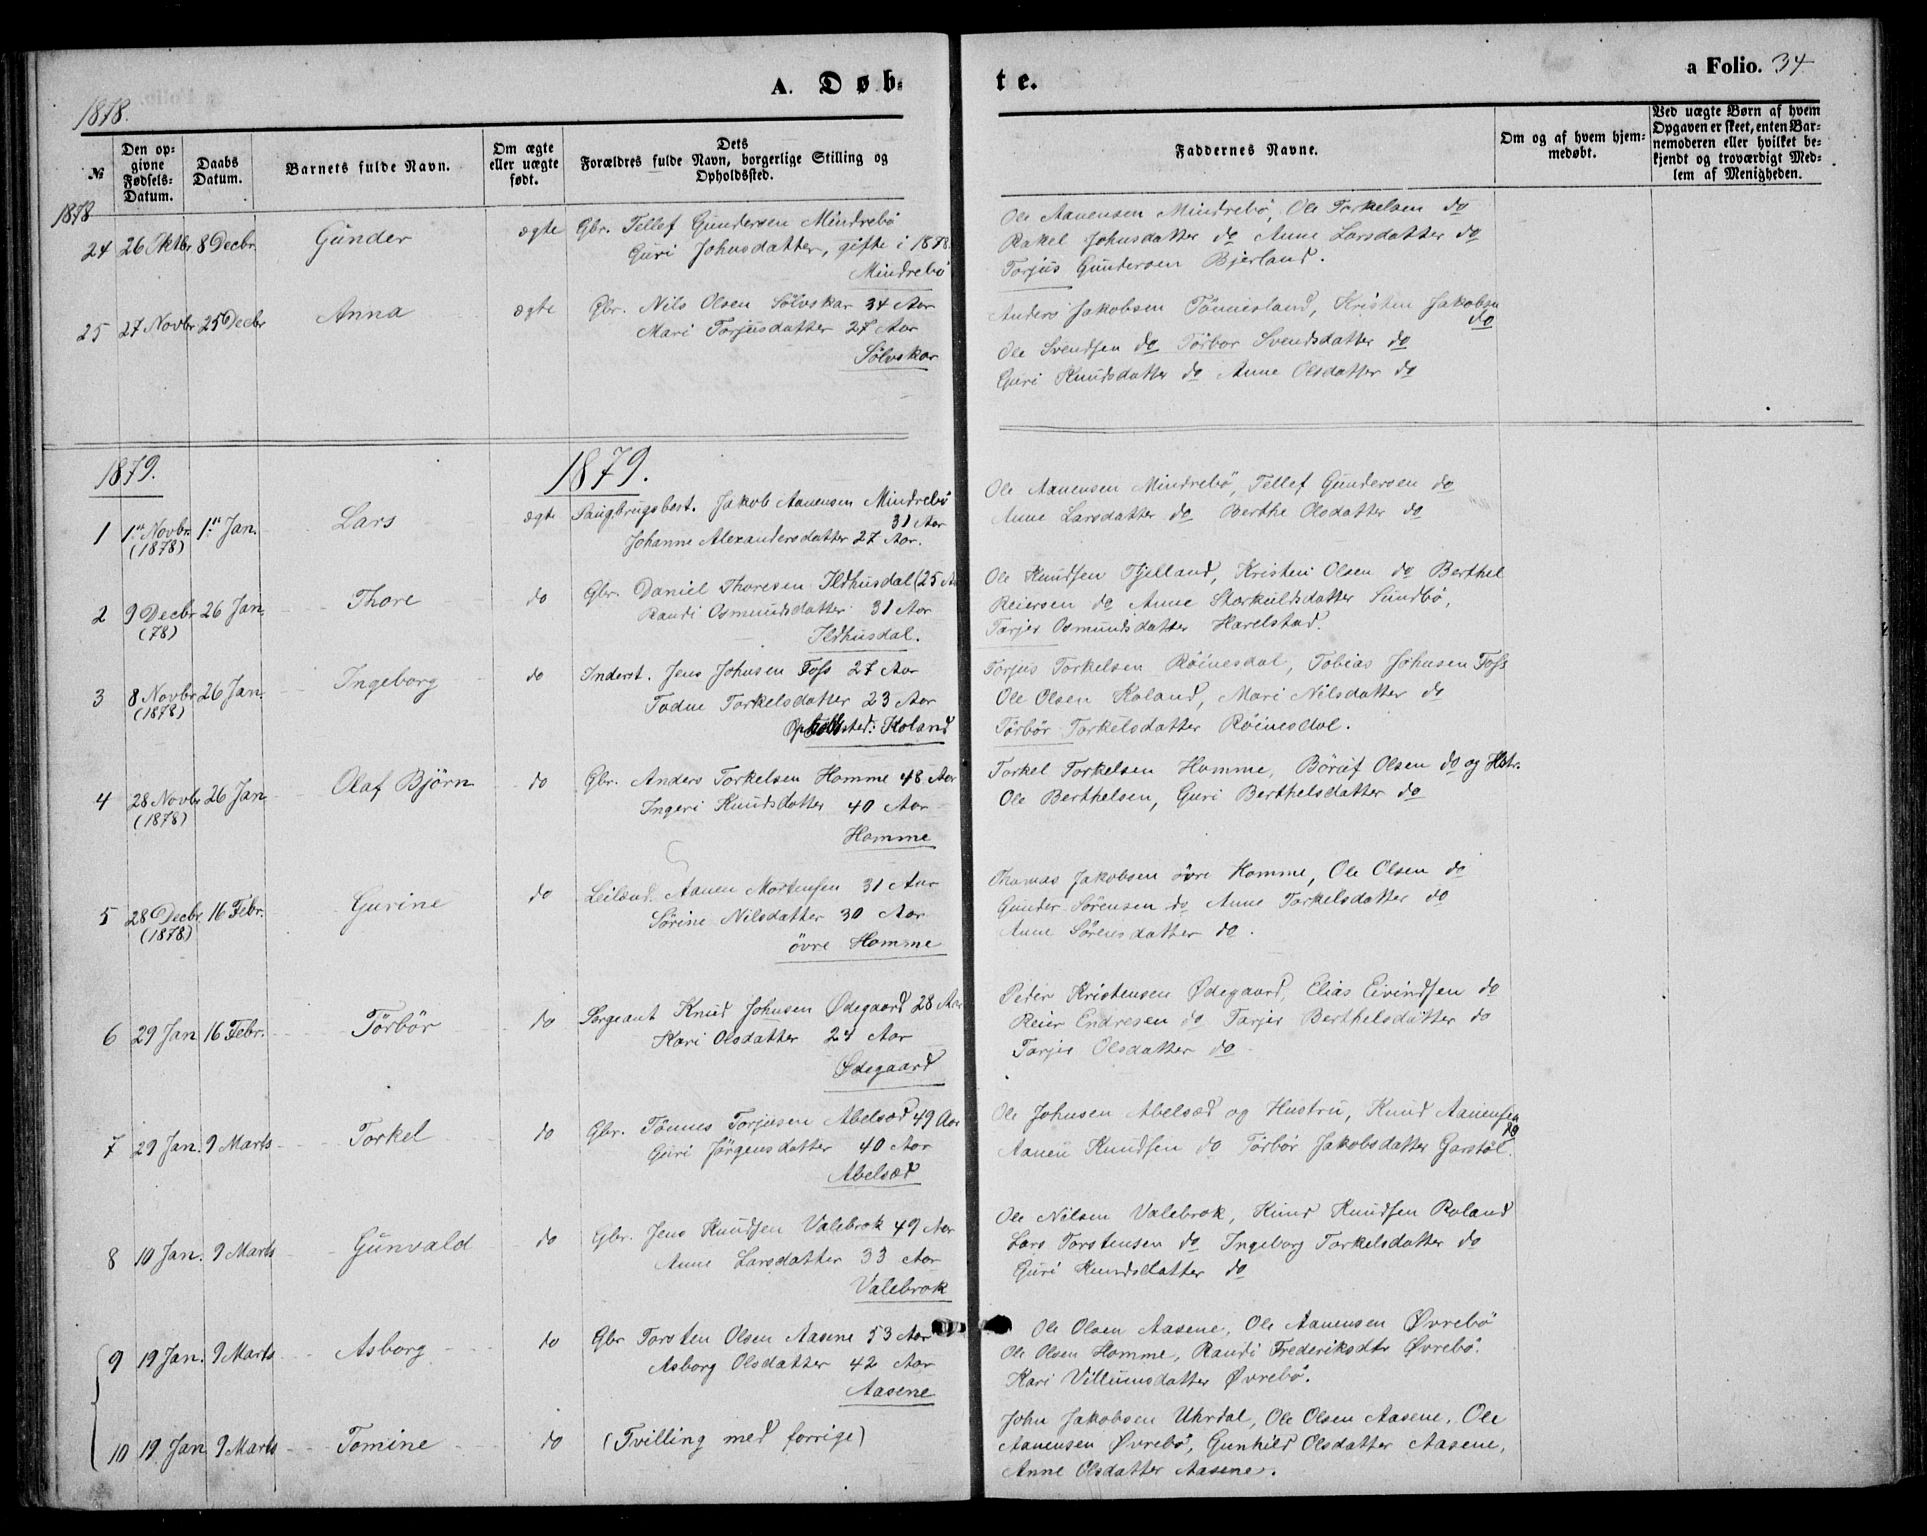 A. Døb-
te.
a Folio. 34
1878.
№
Den opgivne Fødsels-Datum.
Daabs Datum.
Barnets fulde Navn.
Om ægte eller uægte født.
Dets Forældres fulde Navn, borgerlige Stilling og Opholdssted.
Faddernes Navne.
Om og af hvem hjemmedøbt.
Ved uægte Børn af hvem Opgaven er skeet, enten Barnemoderen eller hvilket bekjendt og troværdigt Medlem af Menigheden.
1878
24 26 Oktbr 8 Decbr Gunder ægte Gbr. Tellef Gundersen Mindrebö
Guri Johnsdatter, gifte i 1878.
Mindrebö
Ole Aanensen Mindrebö, Ole Torkelsen do
Rakel Johnsdatter do Anne Larsdatter do
Torjus Gundersen Bjerland.
25 27 Novbr 25 Decbr Anna ægte Gbr. Nils Olsen Sölvskar 34 Aar
Mari Torjusdatter 27 Aar
Sölvskar
Anders Jakobsen Tönnesland, Kristen Jakobsen
do
Ole Svendsen do Törbor Svendsdatter do
Guri Knudsdatter do Anne Olsdatter do
1879.
1879.
1 1ste Novbr. 1ste Jan. Lars ægte Saugbrugsbest. Jakob Aanensen Mindrebö
(1878)
31 Aar
Johanne Alexandersdatter 27 Aar.
Ole Aanensen Mindrebö, Tellef Gundersen do
Anne Larsdatter do Berthe Olsdatter do
2 9 Decbr 26 Jan. Thore do Gbr. Daniel Thoresen Ildhusdal (25 Aar
(78)
Randi Osmundsdatter 31 Aar
Ildhusdal.
Ole Knudsen Fjelland, Kristen Olsen do Berthel
Reiersen do Anne Storkuldsdatter Sundbö,
Tarjer Osmundsdatter Harelstad.
3 8 Novbr 26 Jan. Ingeborg do Inderst. Jens Johnsen Foss 27 Aar
(1878)
Todne Torkelsdatter 23 Aar
Opholdssted: Koland
Torjus Torkelsen Röinesdal, Tobias Johnsen Foss
Ole Olsen Koland, Mari Nilsdatter do
Törbör Torkelsdatter Röinesdal.
4 28 Novbr 26 Jan Olaf Björn do Gbr. Anders Torkelsen Homme 48 Aar
(1878)
Ingeri Knudsdatter 40 Aar
Homme
Torkel Torkelsen Homme, Böruf Olsen do og Hstr.
Ole Berthelsen, Guri Berthelsdatter do
5 28 Decbr 16 Febr. Gurine do Leilænd. Aanen Mortensen 31 Aar
(1878)
Sörine Nilsdatter 30 Aar
övre Homme
Thomas Jakobsen övre Homme, Ole Olsen do
Gunder Sörensen do Anne Torkelsdatter do
Anne Sörensdatter do.
6 29 Jan 16 Febr. Törbör do Sergeant Knud Johnsen Ødegaard 28 Aar
Kari Olsdatter 24 Aar
Ødegaard
Peder Kristensen Ødegaard, Elias Eivindsen do
Reier Endresen do Tarjer Berthelsdatter do
Tarjer Olsdatter do
7 29 Jan. 9 Marts Torkel do Gbr. Tönnes Torjusen Abelsæd 49 Aar
Guri Jörgensdatter 40 Aar
Abelsæd
Ole Johnsen Abelsæd og Hustru, Knud Aanensen
do
Aanen Knudsen do Törbör Jakobsdatter Garstöl.
8 10 Jan. 9 Marts Gunvald do Gbr. Jens Knudsen Valebrok 49 Aar
Anne Larsdatter 33 Aar
Valebrok
Ole Nilsen Valebrok, Knud Knudsen Roland
Lars Torstensen do Ingeborg Torkelsdatter do
Guri Knudsdatter do
9 19 Jan. 9 Marts Asborg do Gbr Torsten Olsen Aasene 53 Aar
Asborg Olsdatter 42 Aar
Aasene
Ole Olsen Aasene, Ole Aanensen Øvrebö
Ole Olsen Homme, Randi Frederiksdtr Øvrebö.
Kari Villumsdatter Øvrebö.
10 19 Jan 9 Marts Tomine do (Tvilling med forrige)
John Jakobsen Uhrdal, Ole Olsen Aasene, Ole
Aanensen Øvrebö, Gunhild Olsdatter Aasene,
Anne Olsdatter Aasene.